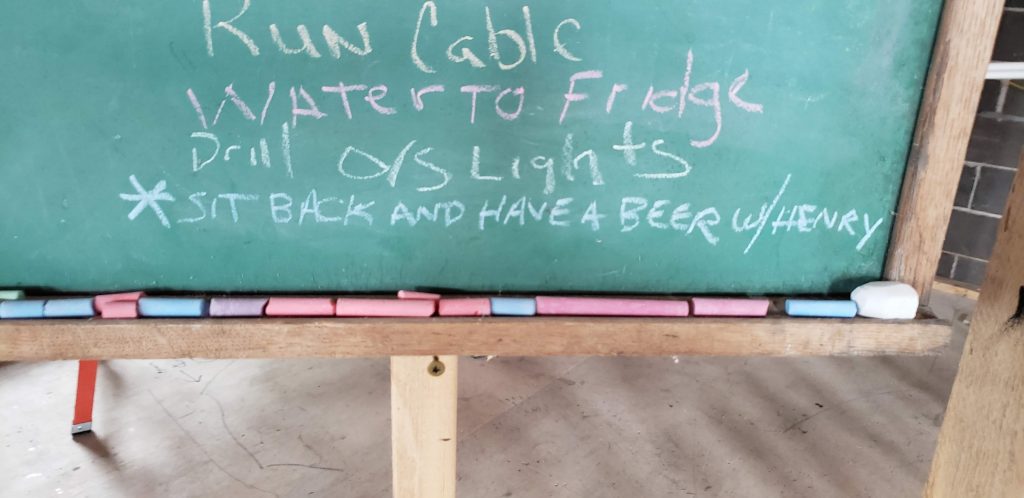 Run Cable
Water To Fridge
Drill O/S Lights
* SIT BACK AND HAVE A BEER W/HENRY